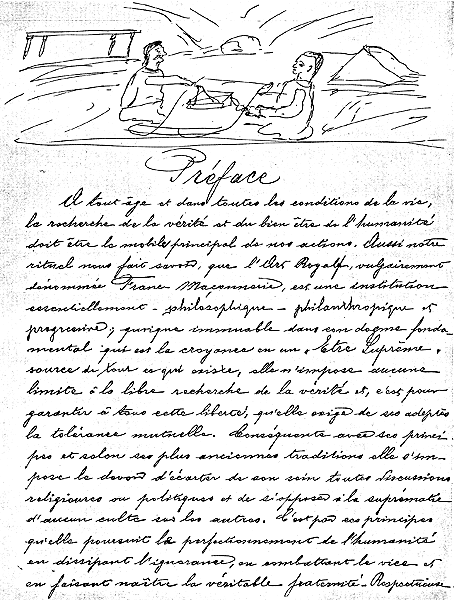 Préface
A tout âge et dans toutes les conditions de la vie,
la recherche de la vérité et du bien être de l'humanité
doit être le mobile principal de nos actions. Aussi notre
rituel nous fait savoir, que l'Art Royal, vulgairement
dénommée Franc Maçonnerie, est une institution
essentiellement - philosophique - philanthropique et
progressive; quoique immuable dans son dogme fonda-
mental qui est la croyance en un "Etre Suprême"
source de tout ce qui existe, elle n'impose aucune
limite à la libre recherche de la vérité et, c'est pour
garantir à tous cette liberté, qu'elle exige de ses adeptes
la tolérance mutuelle. Conséquente avec ses princi-
pes et selon ses plus anciennes traditions elle s'im-
pose le devoir d'écarter de son sein toutes discussions
religieuses ou politiques et de s'opposer à la suprématie
d'aucun culte sur les autres. C'est par ces principes
qu'elle poursuit le perfectionnement de l'humanité
en dissipant l'ignorance, en combattant le vice et
en faisant naître la véritable fraternité - Respectueuse